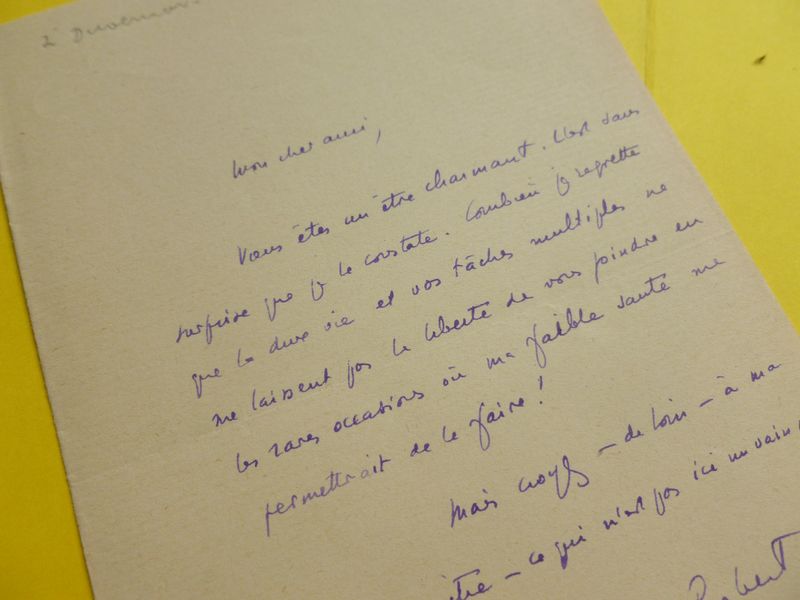 à Duvernois.
Mon cher ami,
Vous êtes un être charmant. C'est sans
surprise que je le constate. Combien je regrette
que la dure vie et vos tâches multiples ne
me laissent pas la liberté de vous joindre en
les rares occasions où ma faible santé me
permettrait de le faire !
Mais croyez – de loin – à ma
– ce qui n'est pas ici un vain
Robert